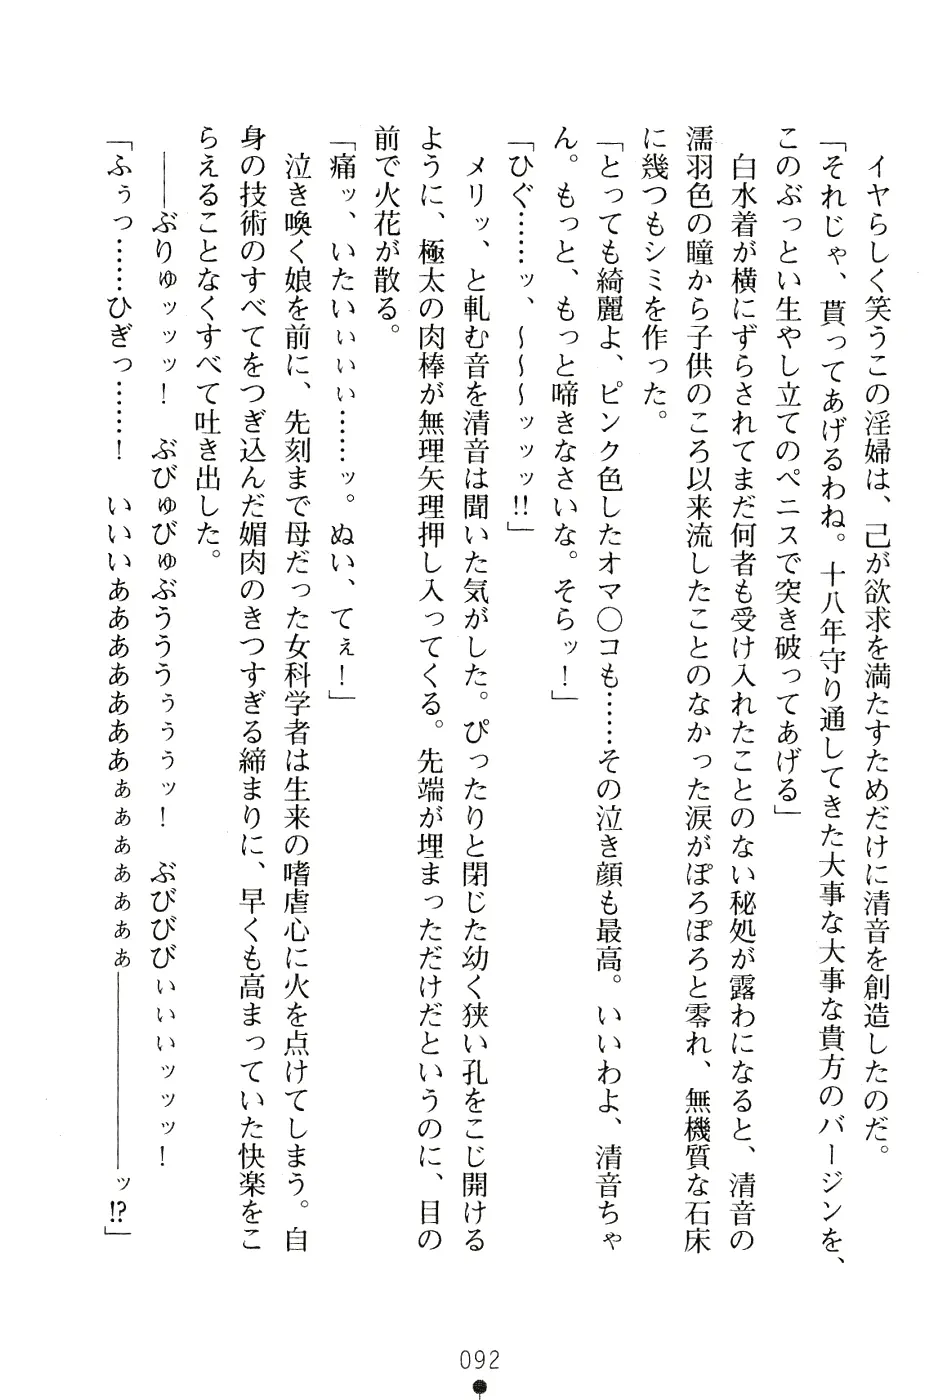 イヤらしく笑うこの淫婦は、己が欲求を満たすためだけに清音を創造したのだ。
「それじゃ、貰ってあげるわね。十八年守り通してきた大事な大事な貴方のバージンを、
このぶっとい生やし立てのペニスで突き破ってあげる」
白水着が横にずらされてまだ何者も受け入れたことのない秘処が露わになると、清音の
濡羽色の瞳から子供のころ以来流したことのなかった涙がぽろぽろと零れ、無機質な石床
に幾つもシミを作った。
「とっても綺麗よ、ピンク色したオマ〇コも……その泣き顔も最高。いいわよ、清音ちゃ
ん。もっと、もっと啼きなさいな。そらッ！」
「ひぐ……ッ、～～～ッッッ!!」
メリッ、と軋む音を清音は聞いた気がした。ぴったりと閉じた幼く狭い孔をこじ開ける
ように、極太の肉棒が無理矢理押し入ってくる。先端が埋まっただけだというのに、目の
前で火花が散る。
「痛ッ、いたいぃぃぃ……ッ。ぬい、てぇ！」
泣き喚く娘を前に、先刻まで母だった女科学者は生来の嗜虐心に火を点けてしまう。自
身の技術のすべてをつぎ込んだ媚肉のきつすぎる締まりに、早くも高まっていた快楽をこ
らえることなくすべて吐き出した。
――ぶりゅッッッ！　ぶびゅびゅぶううぅぅぅッ！　ぶびびびぃぃぃッッッ！
「ふぅっ……ひぎっ……！　いいいああああああぁぁぁぁぁぁ――――――ッ!?」
092